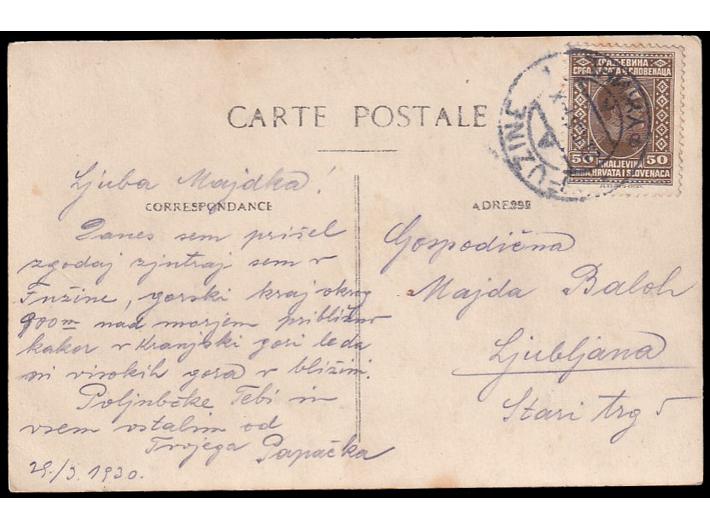 CARTE POSTALE
Ljuba Majdka!
CORRESPONDANCE
Danes sem prišel
zgodaj zjutraj sem v
Fužine, gorski kraj okrog
900m nad morjem približno
kakor v Kranjski gori le da
ni visokih gora v bližini.
Poljubčke Tebi in
vsem ostalim od
Tvojega Papačka
29./3.1930.
ADRESSE
Gospodična
Majda Baloh
Ljubljana
Stari trg 5
КРАЉЕВИНА
СРБА, ХРВАТА И СЛОВЕНАЦА
50 KRALJEVINA 50
SRBA, HRVATA I SLOVENACA
FUŽINE
A